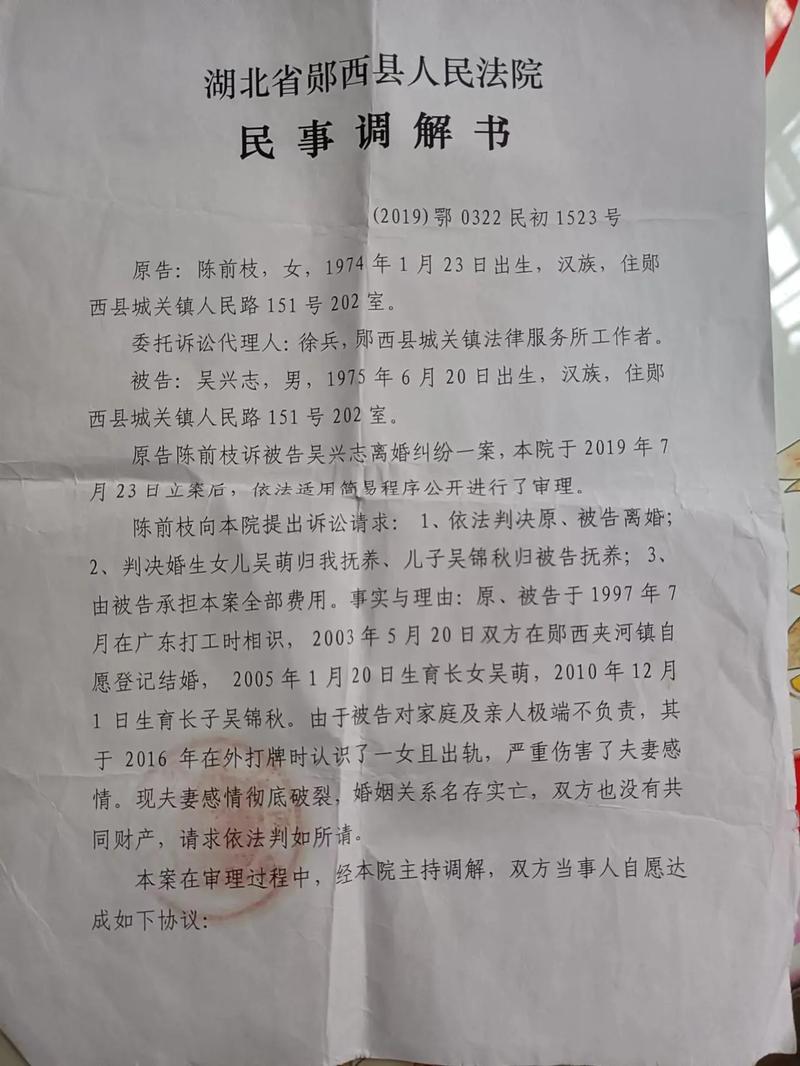 湖北省郧西县人民法院
民事调解书
(2019)鄂 0322 民初 1523 号
原告：陈前枝，女，1974 年 1 月 23 日出生，汉族，住郧
西县城关镇人民路 151 号 202 室。
委托诉讼代理人：徐兵，郧西县城关镇法律服务所工作者。
被告：吴兴志，男，1975 年 6 月 20 日出生，汉族，住郧
西县城关镇人民路 151 号 202 室。
原告陈前枝诉被告吴兴志离婚纠纷一案，本院于 2019 年 7
月 23 日立案后，依法适用简易程序公开进行了审理。
陈前枝向本院提出诉讼请求：1、依法判决原、被告离婚；
2、判决婚生女儿吴萌归我抚养、儿子吴锦秋归被告抚养；3、
由被告承担本案全部费用。事实与理由：原、被告于 1997 年 7
月在广东打工时相识，2003 年 5 月 20 日双方在郧西夹河镇自
愿登记结婚，2005 年 1 月 20 日生育长女吴萌，2010 年 12 月
1 日生育长子吴锦秋。由于被告对家庭及亲人极端不负责，其
于 2016 年在外打牌时认识了一女且出轨，严重伤害了夫妻感
情。现夫妻感情彻底破裂，婚姻关系名存实亡，双方也没有共
同财产，请求依法判如所请。
本案在审理过程中，经本院主持调解，双方当事人自愿达
成如下协议：